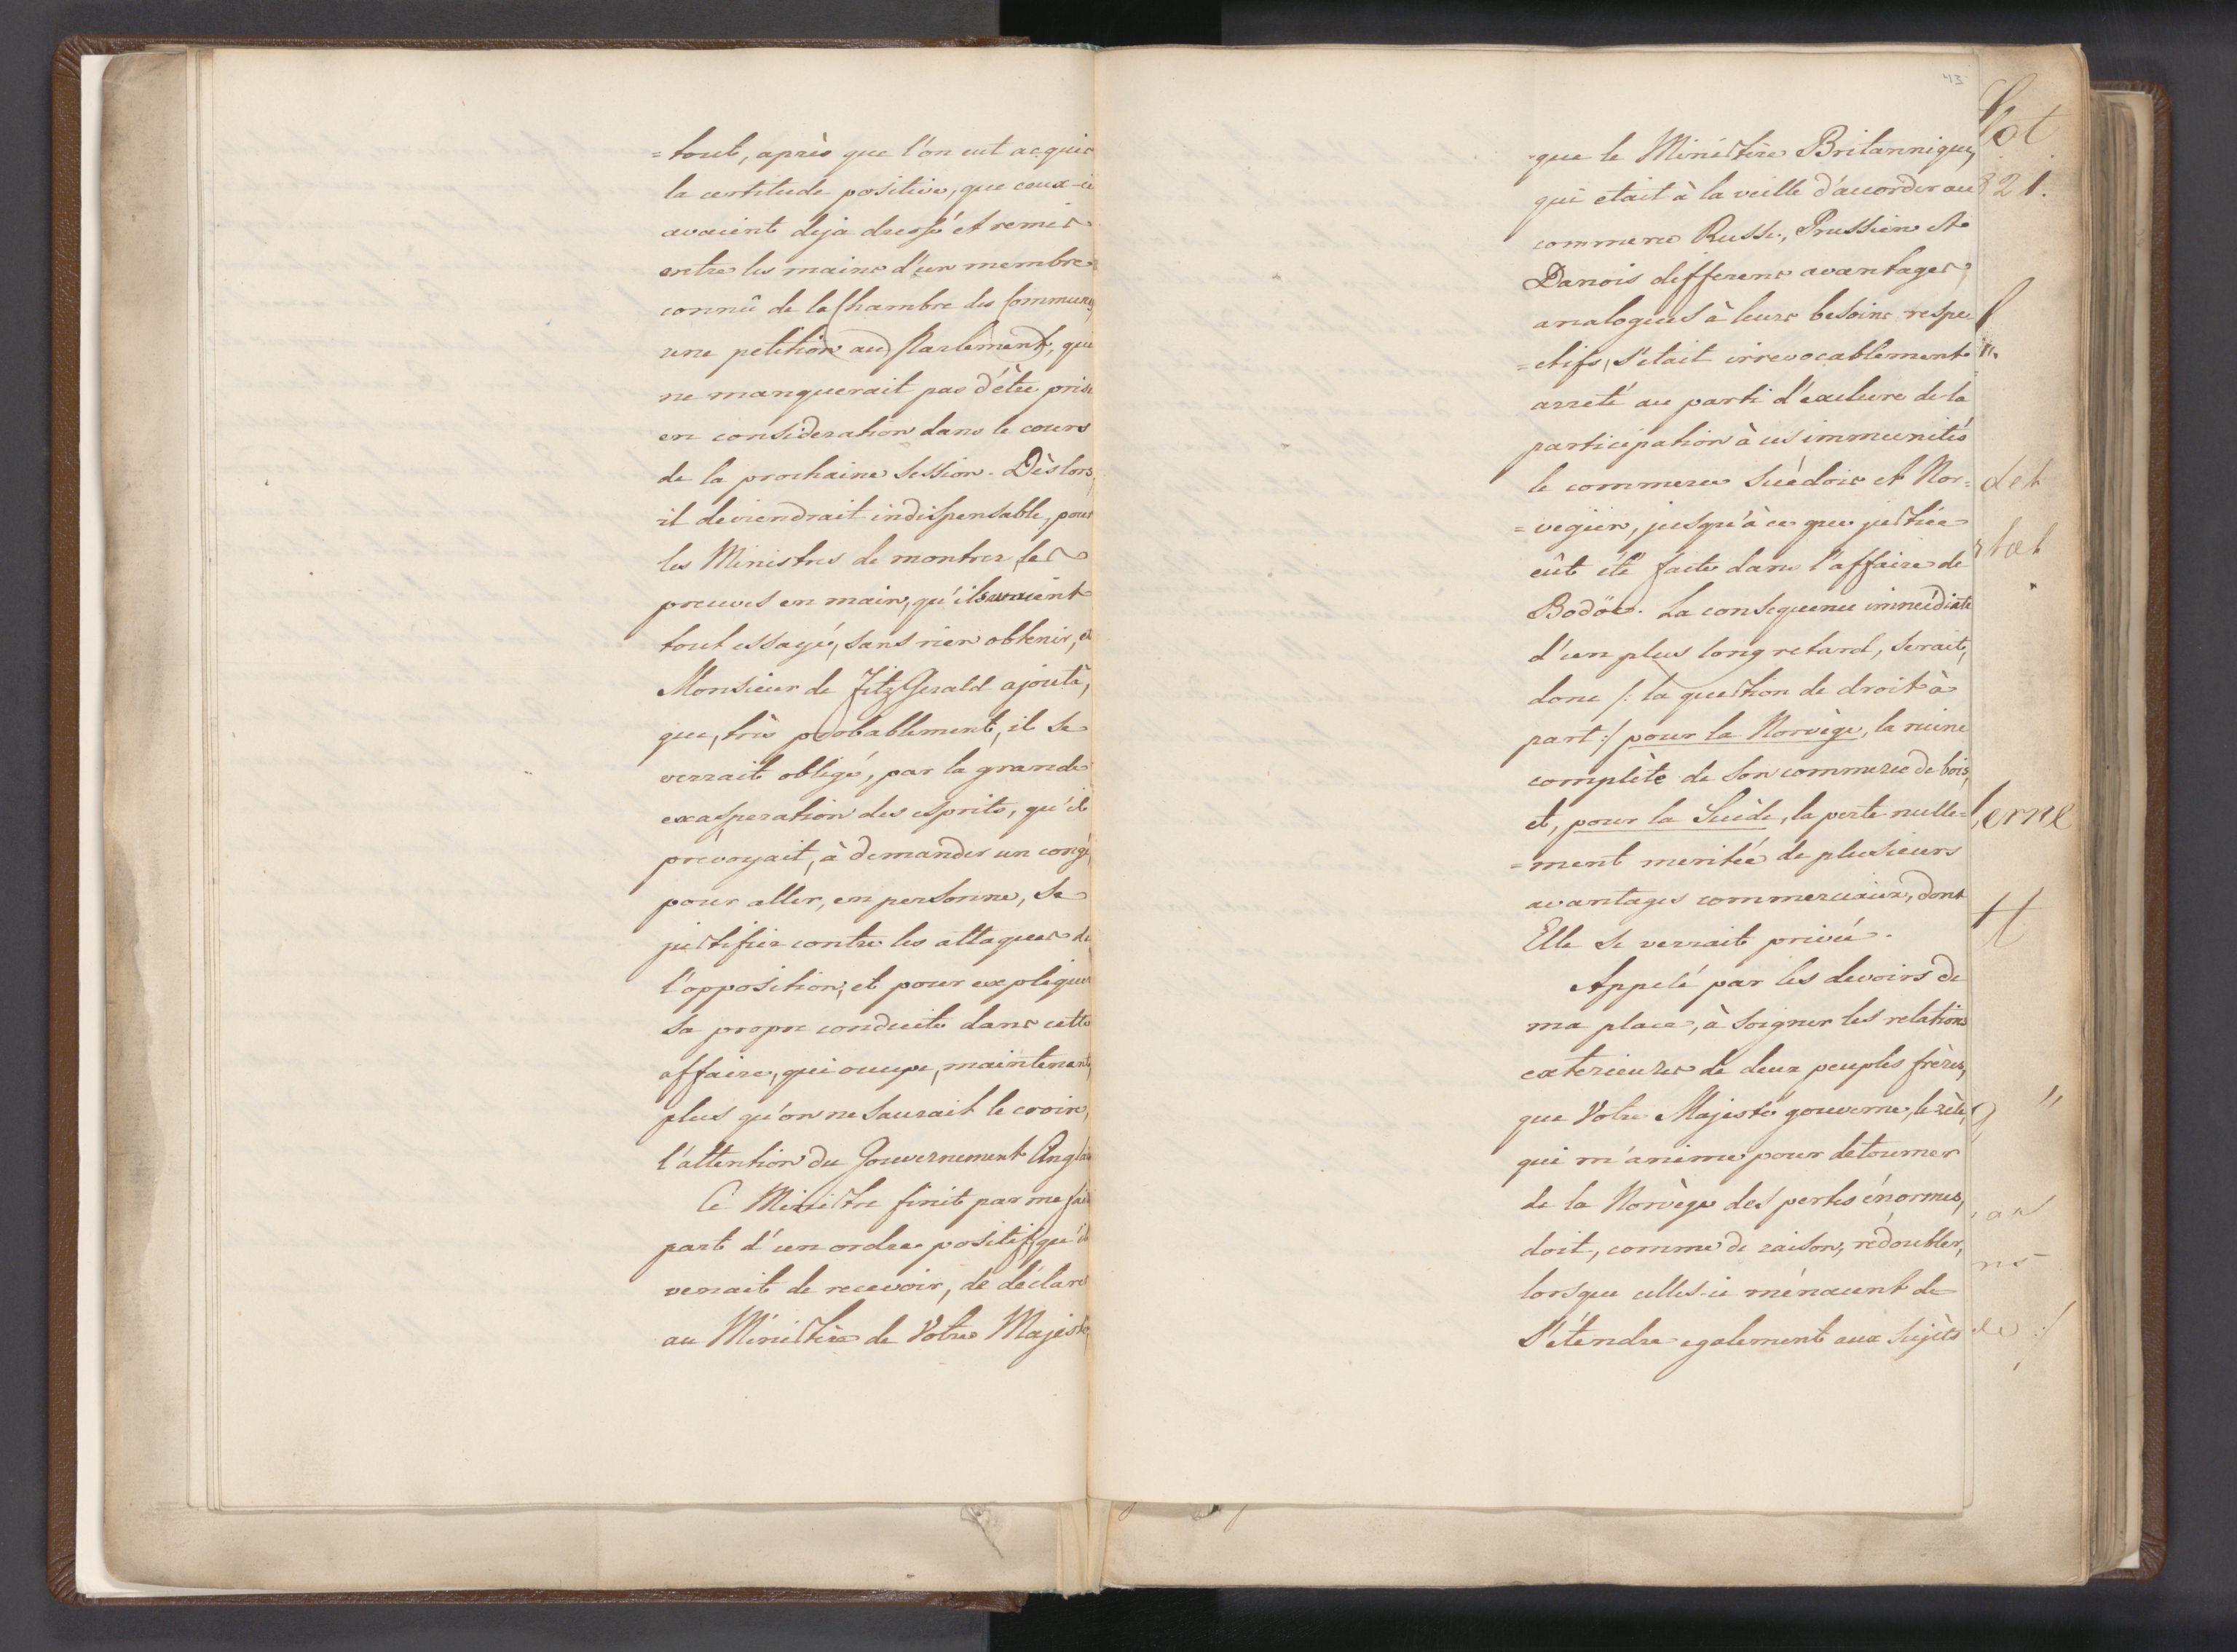 =tout, après que l'on eut acquis
la certitude positive, que ceux-ci
avaient deja dressé et remis
entre les mains d'un membre
connû de la Chambre des Communes,
une petition au Parlement, qui
ne manquerait pas d'être prise
en consideration dans le cours
de la prochaine Session. Dès lors,
il deviendrait indispensable, pour
les Ministres de montrer, les
preuves en main, qu'ils avaient
tout essayé, sans rien obtenir, et
Monsieur de FitzGerald ajouta,
que, très probablement, il se
verrait obligé, par la grande
exasperation des esprits, qu'il
prévoyait, à demander un congé,
pour aller, en personne, se
justifier contre les attaques de
l'opposition, et pour expliquer
sa propre conduite dans cette
affaire, qui occupe, maintenant,
plus qu'on ne saurait le croire,
l'attention du Gouvernement Anglais
Ce Ministre finit par me faire
part d'un ordre positif, qu'il
venait de recevoir, de déclarer
au Ministère de Votre Majesté,
43
que le Ministère Britannique,
qui etait à la veille d'accorder au
commerce Russe, Prussien et
Danois differens avantages,
analogues à leurs besoins respe-
=ctifs, s'etait irrevocablement
arreté au parti d'exclure de la
participation à ces immunités
le commerce Suèdois et Nor=
=vegien, jusqu'à ce que justice
eût été faite dans l'affaire de
Bodöe. La consequence immédiate
d'un plus long retard, serait,
donc /: la question de droit à
part :/ pour la Norvège, la ruine
complète de son commerce de bois,
et, pour la Suède, la perte nulle=
=ment meritée de plusieurs
avantages commerciaux, dont
Elle se verrait privée.
Appelé par les devoirs de
ma place, à soigner les relations
exterieures de deux peuples frères,
que Votre Majesté gouverne, le zèle,
qui m'anime pour detourner
de la Norvège des pertes énormes,
doit, comme de raison, rédoubler,
lorsque celles-ci ménacent de
s'étendre egalement aux sujèts
21.
det